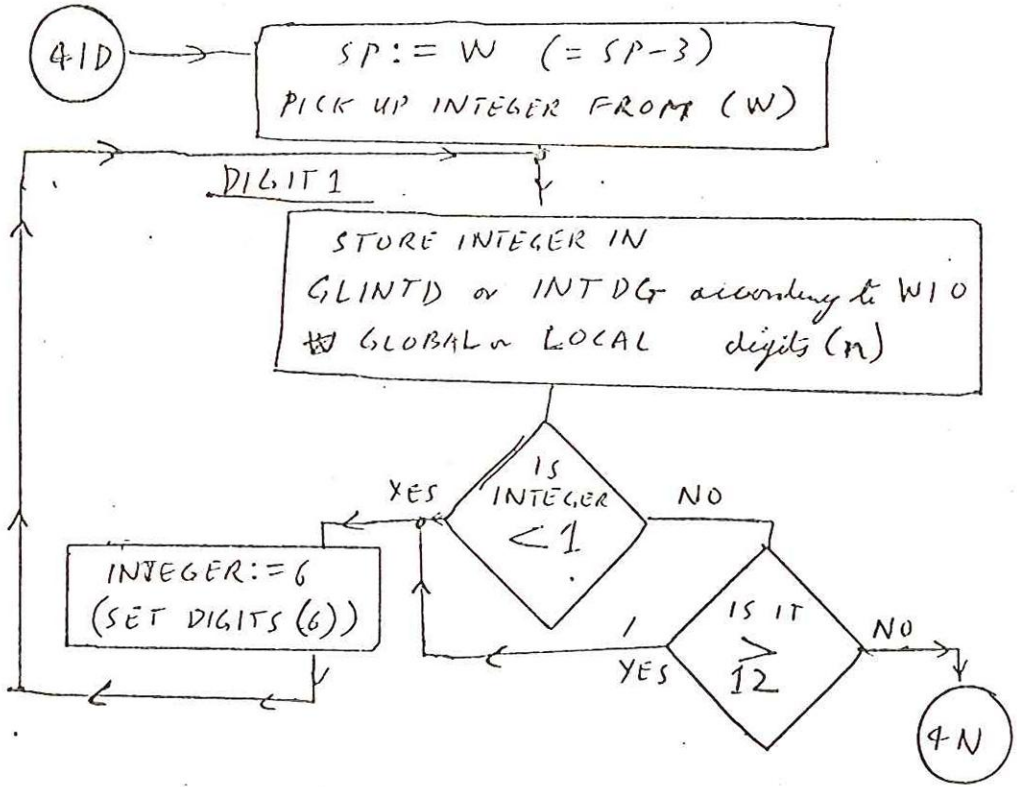 41D
SP:= W (= SP-3)
PICK UP INTEGER FROM (W)
DIGIT1
STORE INTEGER IN
GLINTD or INTDG according to W10
GLOBAL or LOCAL digits (n)
IS
INTEGER
<1
YES
NO
INTEGER:=6
(SET DIGITS (6))
IS IT
>
12
YES
NO
4N